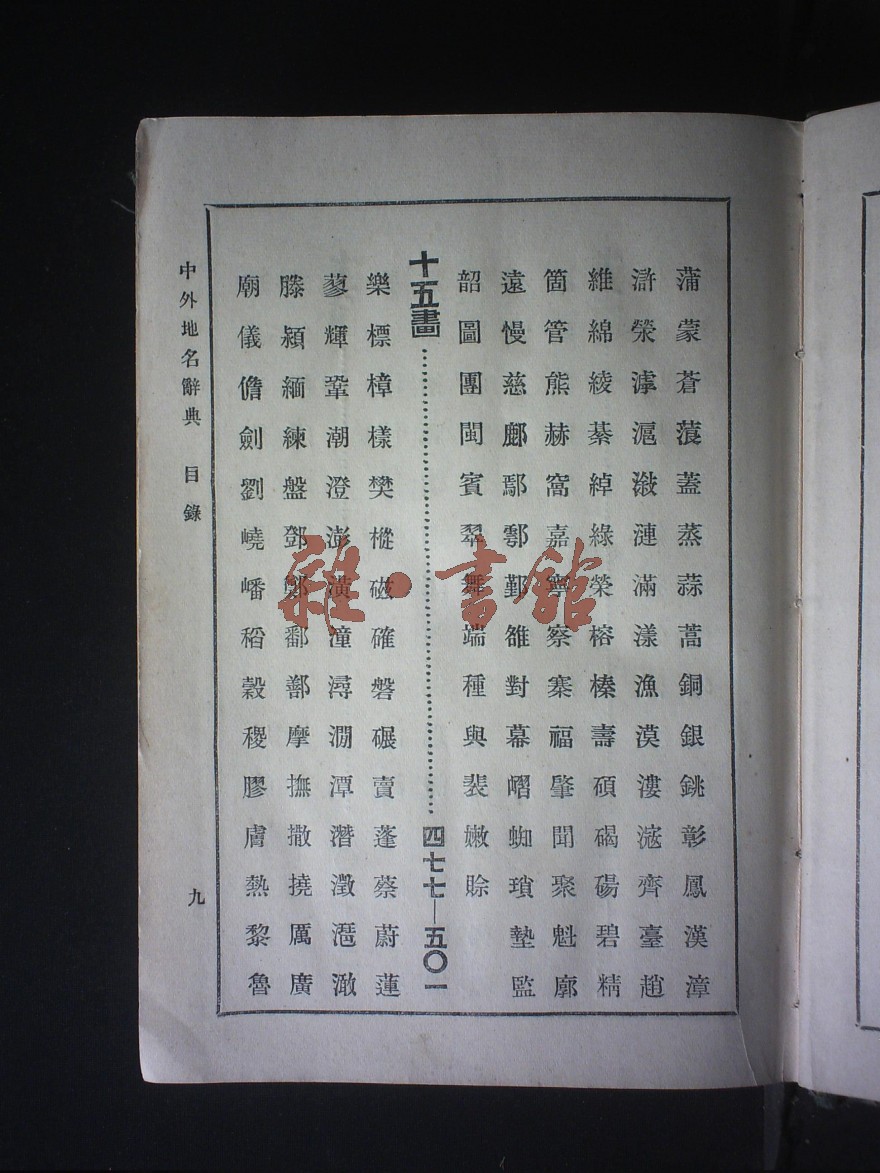 蒲蒙蒼蒗蓋蒸蒜蒿銅銀銚彰鳳漢漳
滸滎滹滬漵漣滿漾漁漠漊漩齊臺趙
維綿綾綦綽綠榮榕榛壽碩碣碭碧精
箇管熊赫窩嘉寧察寨福肇聞聚魁廓
遠慢慈鄜鄢鄠鄞雒對幕嶍蜘瑣墊監
韶圖團閩賓翠舞端種與裴嫩賒
十五畫……四七七—五〇一
樂標樟樣樊樅磁確磐碾賣蓬蔡蔚蓮
蓼輝鞏潮澄澎潢潼潯澗潭潛澂澔澈
滕潁緬練盤鄧鄭鄱鄯摩撫撒撓厲廣
廟儀儋劍劉嶢嶓稻穀稷膠膚熱黎魯
中外地名辭典 目錄
九
雜·書館